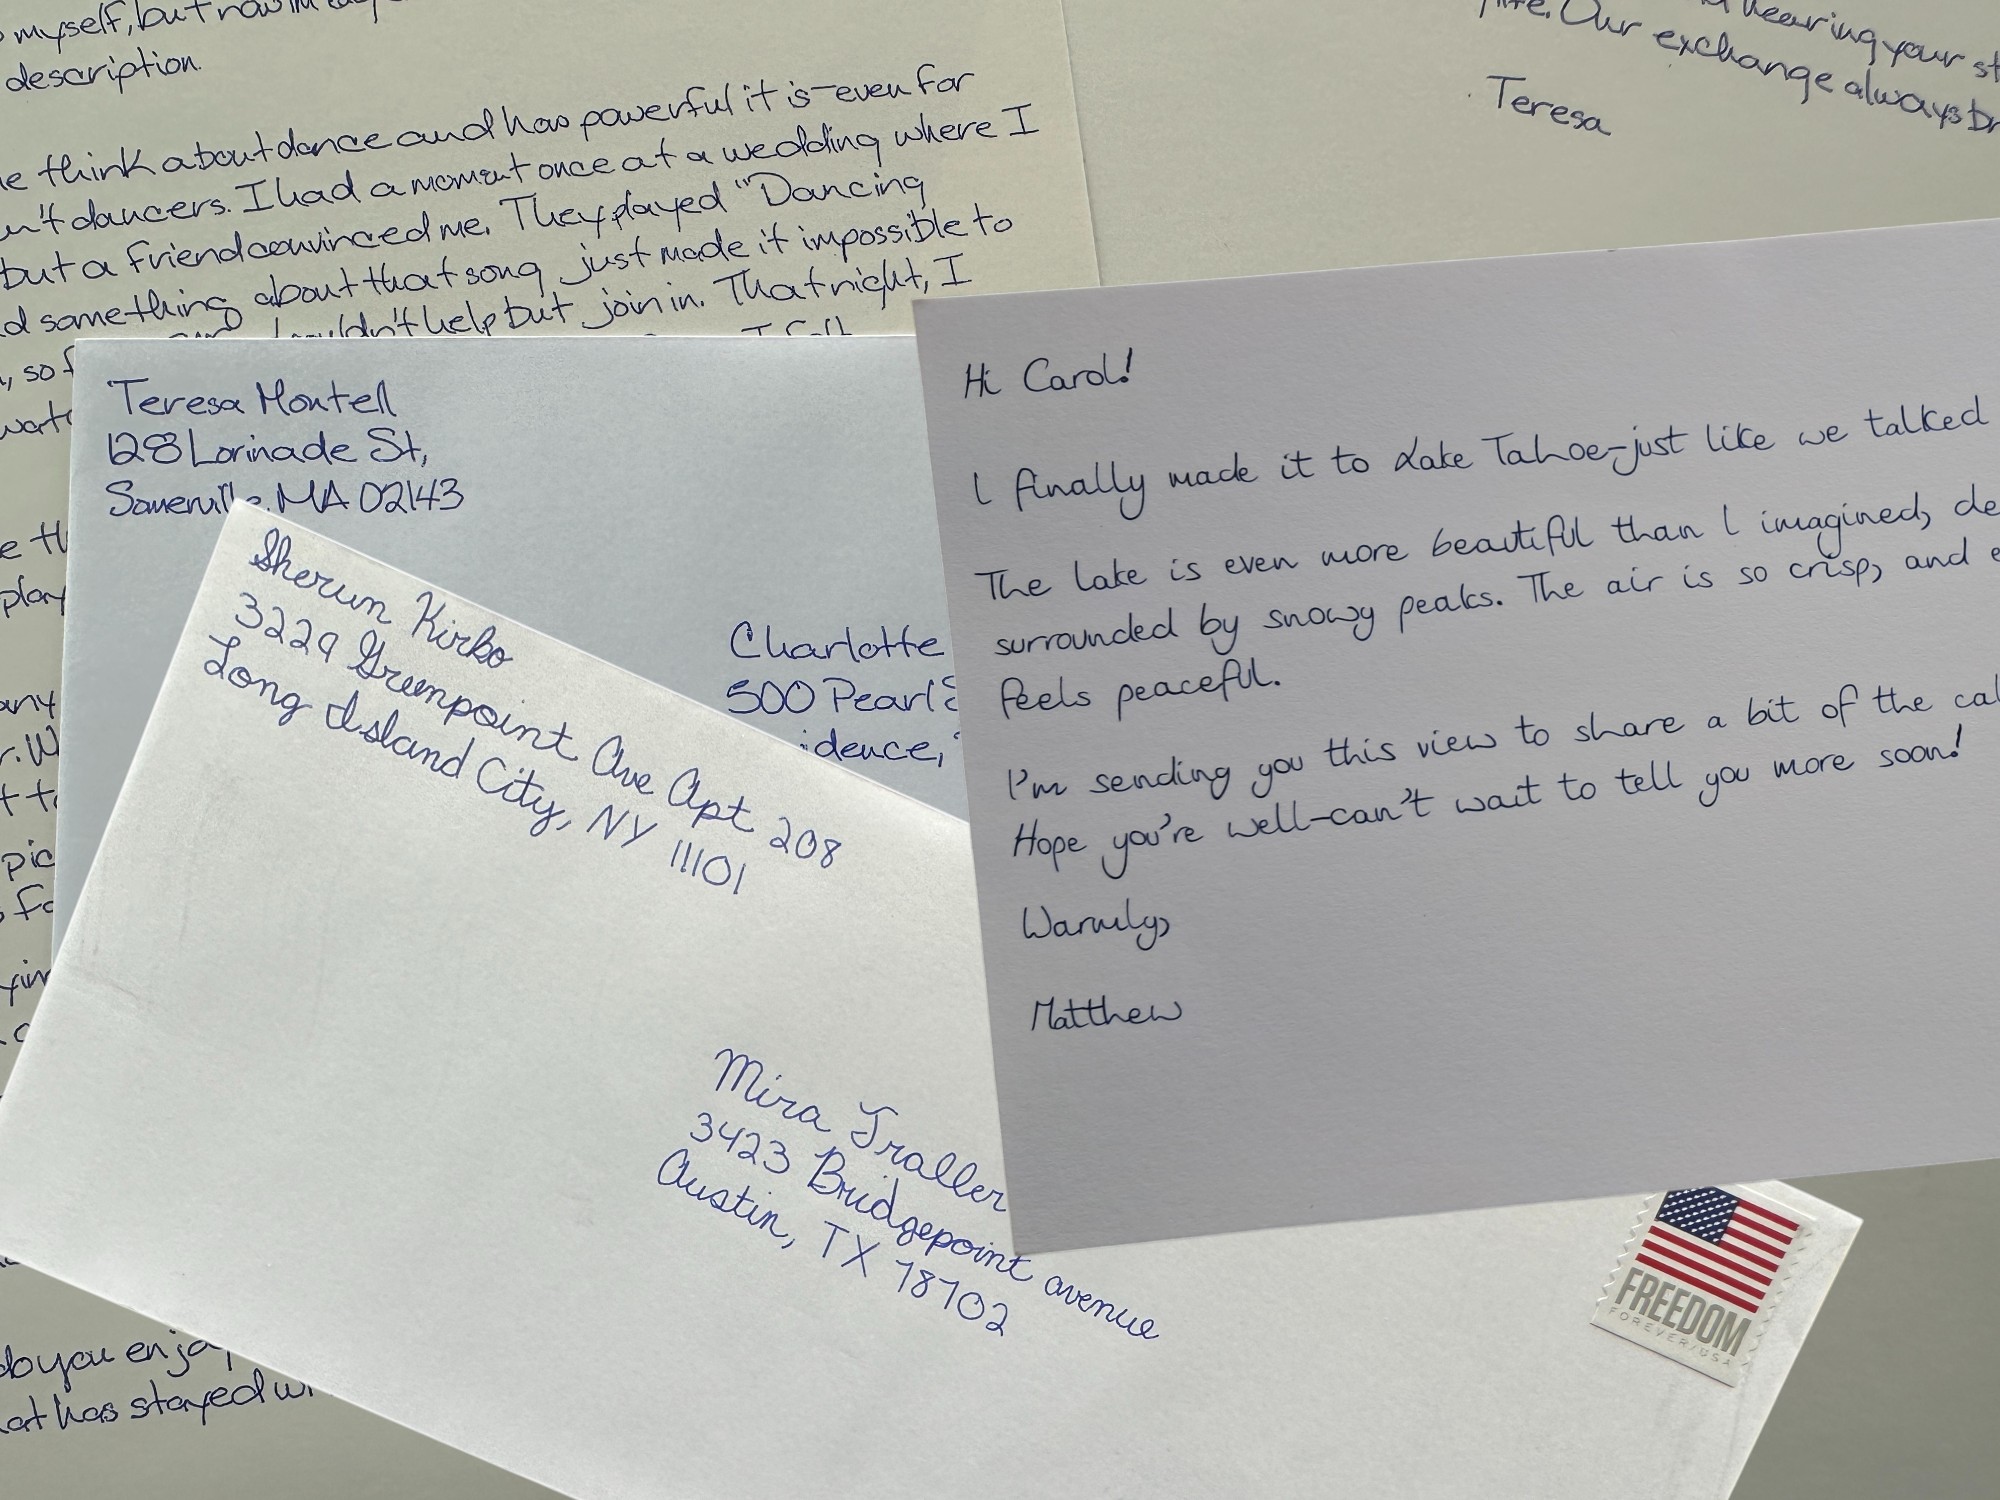 myself, but now
description.
think about dance and how powerful it is-even for
dancers. I had a moment once at a wedding where I
but a friend convinced me. They played "Dancing
something about that song just made it impossible to
couldn't help but join in. That night, I
so
I felt
play
any
pic
do you enjoy
has stayed
hearing your
life. Our exchange always
Teresa
Teresa Montell
128 Lorinade St,
Somerville, MA 02143
Charlotte
500 Pearl
Sherun Kirbo
3229 Greenpoint Ave Apt 208
Long Island City, NY 11101
Mira Traller
3423 Bridgepoint avenue
Austin, TX 78702
Hi Carol!
I finally made it to Lake Tahoe-just like we talked
The lake is even more beautiful than I imagined,
surrounded by snowy peaks. The air is so crisp, and
feels peaceful.
I'm sending you this view to share a bit of the
Hope you're well-can't wait to tell you more soon!
Warmly,
Matthew
FREEDOM
FOREVER/USA